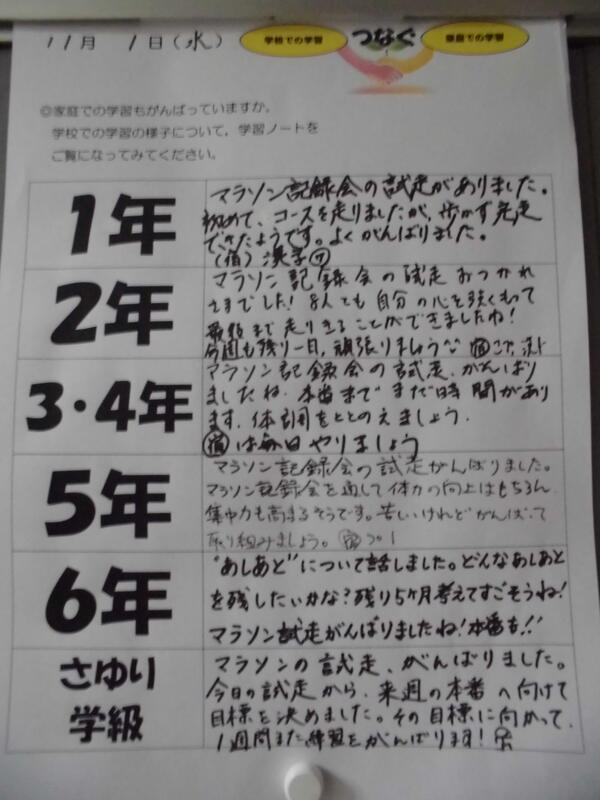 11月 1日(水)
学校での学習 つなぐ 家庭での学習
◎家庭での学習もがんばっていますか。
学校での学習の様子について,学習ノートを
ご覧になってみてください。
1年
マラソン記録会の試走がありました。
初めて、コースを走りましたが、歩かず完走
できたようです。よくがんばりました。
(宿)漢字
2年
マラソン記録会の試走おつかれ
さまでした!8人とも自分の心を強くもって
最後まで走りきることができましたね!
今週も残り一日,頑張りましょう
3・4年
マラソン記録会の試走、がんばり
ましたね。本番まで まだ時間があり
ます。体調をととのえましょう。
宿は毎日 やりましょう
5年
マラソン記録会の試走がんばりました。
マラソン記録会を通して体力の向上はもちろん
集中力も高まるそうです。苦しいけれどがんばって
取り組みましょう。
6年
"あしあと"について話しました。どんなあしあと
を残したいかな?残り5ヶ月考えてすごそうね!
マラソン試走がんばりましたね!本番も!!
さゆり
学級
マラソンの試走、がんばりました。
今日の試走から、来週の本番へ向けて
目標を決めました。その目標に向かって、
1週間また練習をがんばります!